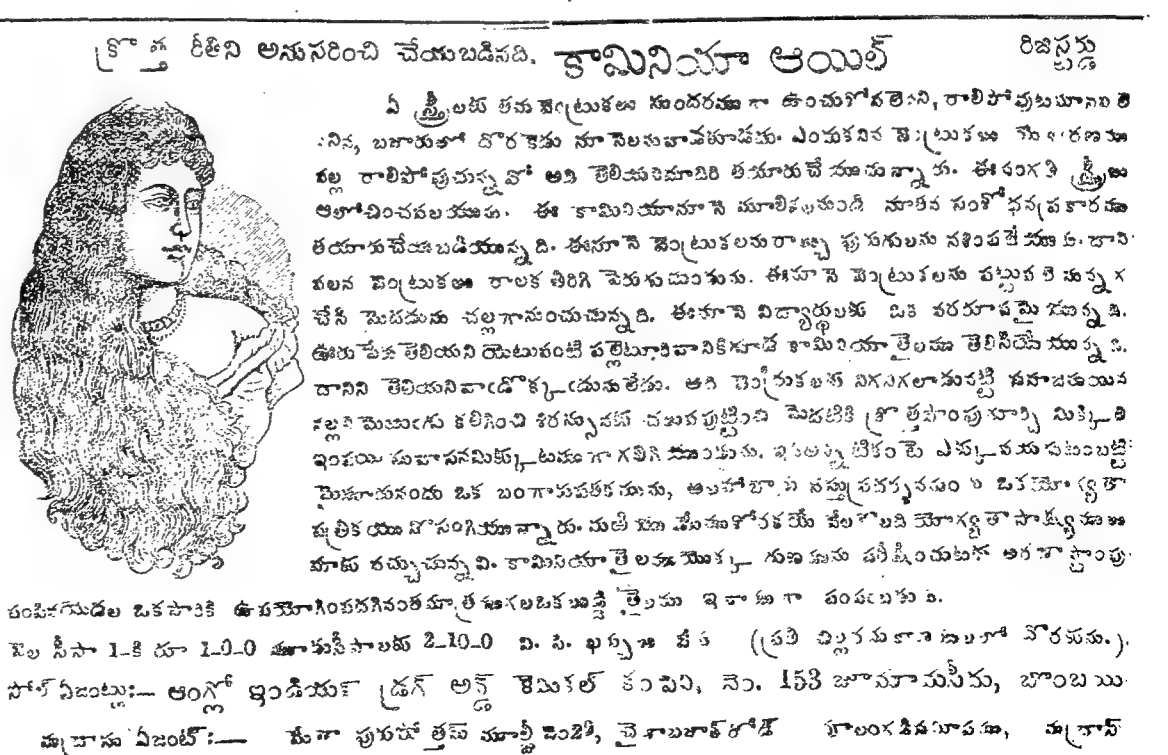 క్రొత్త రీతిని అనుసరించి చేయబడినది. కామినియా ఆయిల్ రిజిస్టర్డు
ఏ స్త్రీలకు తమ వెంట్రుకలు సుందరముగా ఉంచుకోవలెనని, రాలిపోవుట మానవలె
నన, బజారులో దొరకెడు నూనెలను వాడకూడదు. ఎందుకనిన వెంట్రుకలు
వల్ల రాలిపోవుచున్నవో అని తెలియనిమాదిరి తయారుచేయుచున్నారు. ఈ సంగతి స్త్రీలు
ఆలోచించవలయును. ఈ కామినియానూనె మూలికలనుండి నూతన సంశోధన ప్రకారము
తయారుచేయబడియున్నది. ఈనూనె వెంట్రుకలను రాల్చు పురుగులను నశింపజేయును. దాని
వలన వెంట్రుకలు రాలక తిరిగి పెరుగుచుండును. ఈనూనె వెంట్రుకలను పట్టువలె నున్నగ
చేసి మెదడును చల్లగానుంచుచున్నది. ఈనూనె విద్యార్థులకు ఒక వరరూపమైయున్నది.
ఊరు పేరు తెలియని యెటువంటి పల్లెటూరివానికిగూడ కామినియా తైలము తెలిసియేయున్నది.
దానిని తెలియనివాఁడొక్కఁడును లేడు. అది వెంట్రుకలకు నిగనిగలాడునట్టి సహజమయిన
నల్లని మెఱుఁగు కలిగించి శిరస్సునకు చలువపుట్టించి మెదటికి క్రొత్తసొంపు గూర్చి మిక్కిలి
ఇంపయి సువాసన మిక్కుటముగా గలిగియుండును. ఇవన్నిటికంటె ఎక్కువయగుటంబట్టి
మైసూరునందు ఒక బంగారుపతకమును, అలహాబాదు వస్తుప్రదర్శనమందు ఒక యోగ్యతా
పత్రికయు నొసంగియున్నారు. మఱియు మేముకోరకయే వేలకొలది యోగ్యతా సాక్ష్యములు
మాకు వచ్చుచున్నవి. కామినియా తైలముయొక్క గుణమును పరీక్షించుటకు అరణాస్టాంపు
పంపినయెడల ఒకసారికి ఉపయోగింపదగినంతమాత్రముగల ఒక బుడ్డి తైలము ఇనాముగా పంపబడును.
వెల సీసా 1-కి రూ 1-0-0 మూడుసీసాలకు 2-10-0 వి. పి. ఖర్చులు వేరు (ప్రతి చిల్లరదుకాణములలో దొరకును.)
సోల్ ఏజంట్లు:— ఆంగ్లో ఇండియన్ డ్రగ్ అన్డ్ కెమికల్ కంపెని, నెం. 153 జూమామసీదు, బొంబయి
మద్రాసు ఏజంట్:— పురుషోత్తమ్ మద్రాస్